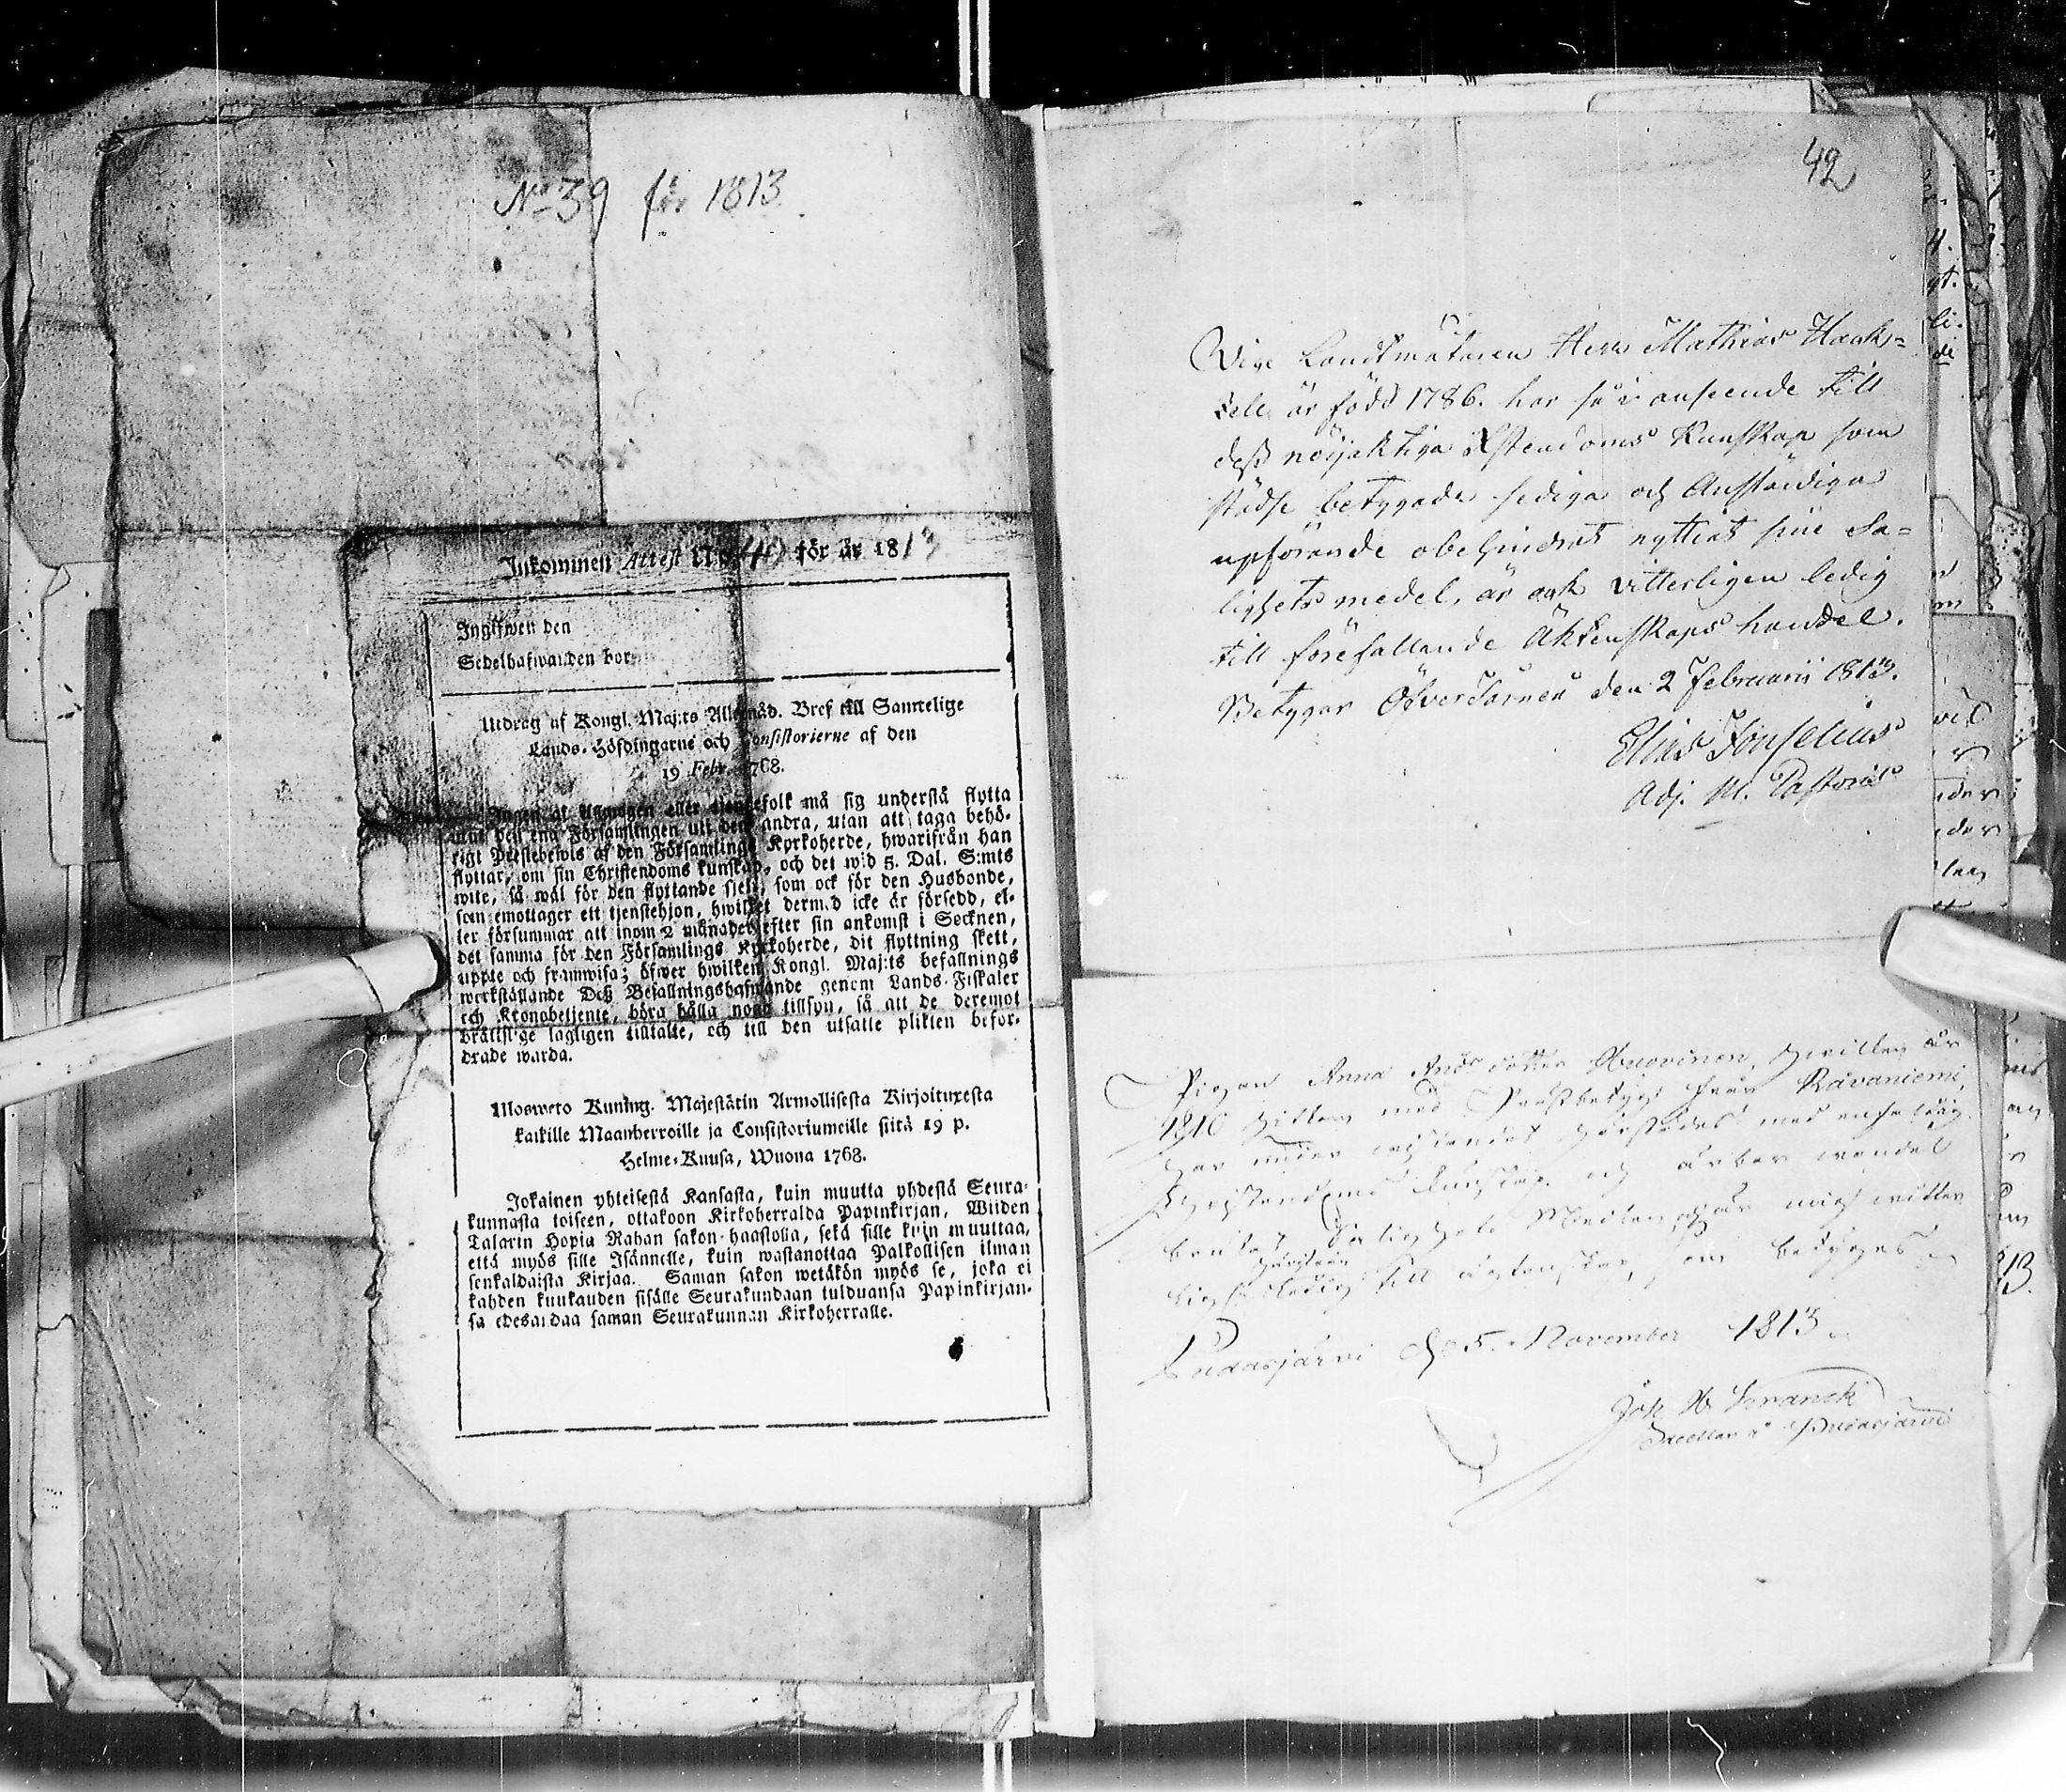 No 39 för 1813
Inkommen Attest N:o 40 för år 1813
Ingifwen den
Sedelhafwanden bor
Utdrag af Kongl. Maj:ts Allernåd. Bref till Samtelige
Lands-Höfdingarne och Consistorierne af den
19 Febr. 1768.
Ingen af allmogen eller tjenstefolk må sig understå flytta
utur den ena Församlingen uti den andra, utan att taga behö-
rigt Prestebewis af den Församlings Kyrkoherde, hwarifrån han
flyttar, om sin Christendoms kunskap, och det wid 5. Dal. S:mts
wite, så wäl för den flyttande sjelf, som ock för den Husbonde,
som emottager ett tjenstehjon, hwilket dermed icke är försedd, el-
ler försummar att inom 2 månader efter sin ankomst i Socknen,
det samma för den Församlings Kyrkoherde, dit flyttning skett,
uppte och framwisa; öfwer hwilken Kongl. Maj:ts befallnings
werkställande Deß Befallningshafwande genom Lands-Fiskaler
och Kronobetjente, böra hålla noga tillsyn, så att de deremot
brättslige lagligen tilltalte, och till den utsatte plikten befor-
drade warda.
Ulosweto Kuning. Majestätin Armollisesta Kirjoituxesta
kaikille Maanherroille ja Consistoriumeille siitä 19 p.
Helme-Kuusa, Wuona 1768.
Jokainen yhteisestä Kansasta, kuin muutta yhdestä Seura-
kunnasta toiseen, ottakoon Kirkoherralda Papinkirjan, Wiiden
Talarin Hopia Rahan sakon-haastolla, sekä sille kuin muuttaa,
että myös sille Isännelle, kuin wastanottaa Palkollisen ilman
senkaldaista Kirjaa. Saman sakon wetäkön myös se, joka ei
kahden kuukauden sisälle Seurakundaan tulduansa Papinkirjan-
sa edesandaa saman Seurakunnan Kirkoherralle.
42
Vice Landtmätaren Herr Mathias Hack-
zell är född 1786. har så i anseende till
dess nöjaktiga Xstendoms Kunskap som
städse betygade sediga och Anständiga
uppförande obehindrat nyttiat sine Sa-
lighets medel, är ock vitterligen ledig
till förefallande Äktenskaps handel.
Betygar ÖfverTorneå den 2 Februarii 1813.
Elias Fonselius
Adj. M. Pastoris
Pigan Anna Andsdotter Huovinen, hvilken år
1810 hitkom med Prestbetyg från Råvaniemi,
har under vistandet härstädes med
Christendoms kunskap och ärbar vandel
Salighets Medlen, och är mig vitter-
ledig till äktenskap, som betygas
Pudasjärvi d. 5. November 1813
Joh. H. Kranck
Pudasjärvi